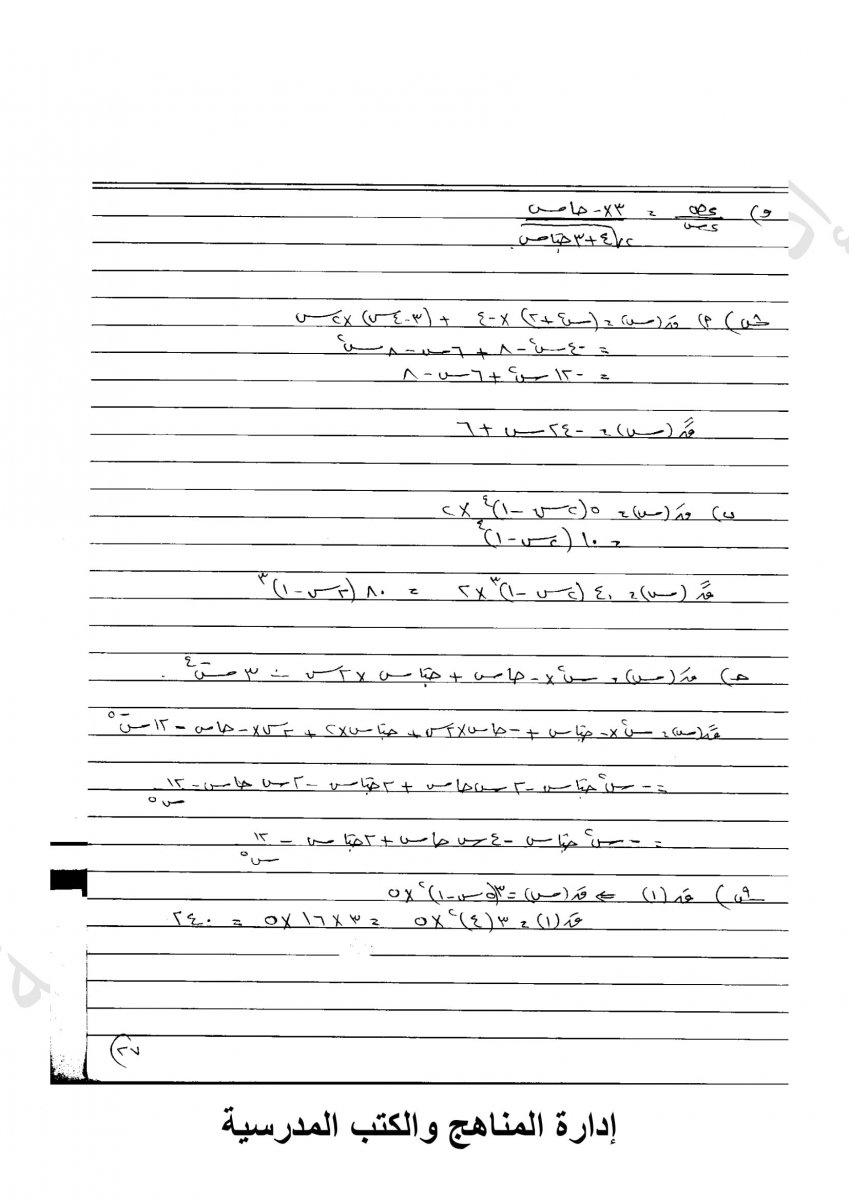 و) دص/دس = ٣×-جاس / ٢√(٤+٣جتاس)
س٢) م) قَ(س) = (٢+٤س) × -٤ + (٣-٤س) × ٢س
= -٤س² - ٨ + ٦س - ٨س²
= -١٢س² + ٦س - ٨
قً(س) = -٢٤س + ٦
ب) قَ(س) = ٥(٢س - ١)⁴ × ٢
= ١٠(٢س - ١)⁴
قً(س) = ٤٠(٢س - ١)³ × ٢ = ٨٠(٢س - ١)³
جـ) قَ(س) = س² × -جاس + جتاس × ٢س - ٣س⁻⁴
قً(س) = س² × -جتاس + -جاس × ٢س + جتاس × ٢ + ٢س × -جاس - ١٢س⁻⁵
= -س² جتاس - ٢س جاس + ٢جتاس - ٢س جاس - ١٢/س⁵
= -س² جتاس - ٤س جاس + ٢جتاس - ١٢/س⁵
قَ(١) ⇐ قَ(س) = ٣(٥س - ١)² × ٥
قَ(١) = ٣(٤)² × ٥ = ٣ × ١٦ × ٥ = ٢٤٠
(٢٧
إدارة المناهج والكتب المدرسية